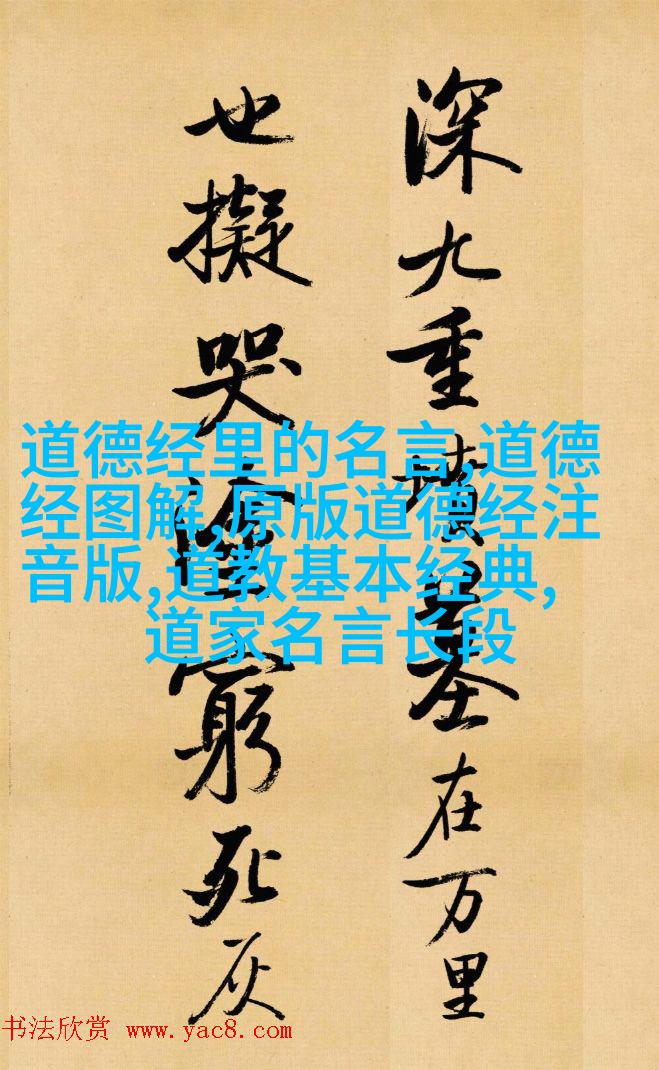 深九重墳墓在万里
也擬哭塗窮死灰
道德经里的名言,道德
经图解,原版道德经注
音版,道教基本经典,
道家名言长段
书法欣赏 www.yac8.com